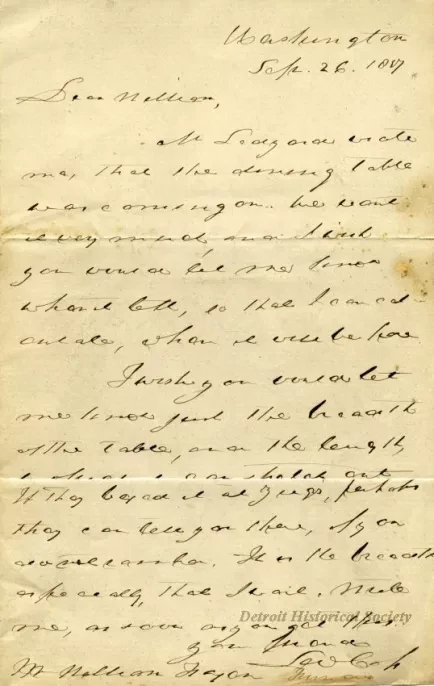 Washington
Sep. 26. 18
Dear William,
Mr Ledyard wrote
me, that the dining table
was coming on. We want
it very much, and I wish
you would let me know
when it left, so that I can cal-
culate, when it will be here
I wish you would let
me know just the breadth
of the table, and the length,
If they boxed it at
they can tell you there, if you
It is the breadth
especially, that I want. Write
me, as soon as you get this.
Your friend
Lew Cass
Wm William
Detroit Historical Society